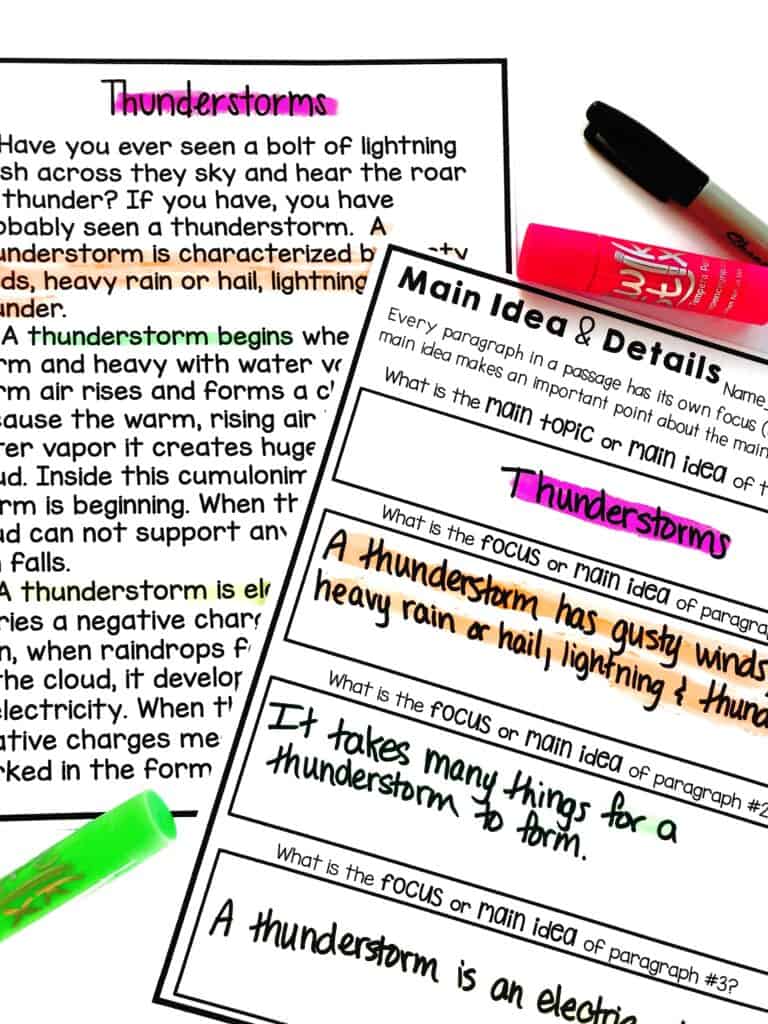 Thunderstorms
Have you ever seen a bolt of lightning
across they sky and hear the roar
thunder? If you have, you have
seen a thunderstorm. A
is characterized
heavy rain or hail, lightning
A thunderstorm begins
and heavy with water
air rises and forms a
the warm, rising air
vapor it creates huge
Inside this
is beginning. When
can not support
falls.
A thunderstorm is
a negative
when raindrops
the cloud, it
electricity. When
charges
in the form
Main Idea & Details
Name
Every paragraph in a passage has its own focus
main idea makes an important point about the main
What is the main topic or main idea of
Thunderstorms
What is the focus or main idea of
A thunderstorm has gusty winds
heavy rain or hail, lightning &
What is the focus or main idea of paragraph #2
It takes many things for a
thunderstorm to form.
What is the focus or main idea of paragraph #3?
A thunderstorm is an